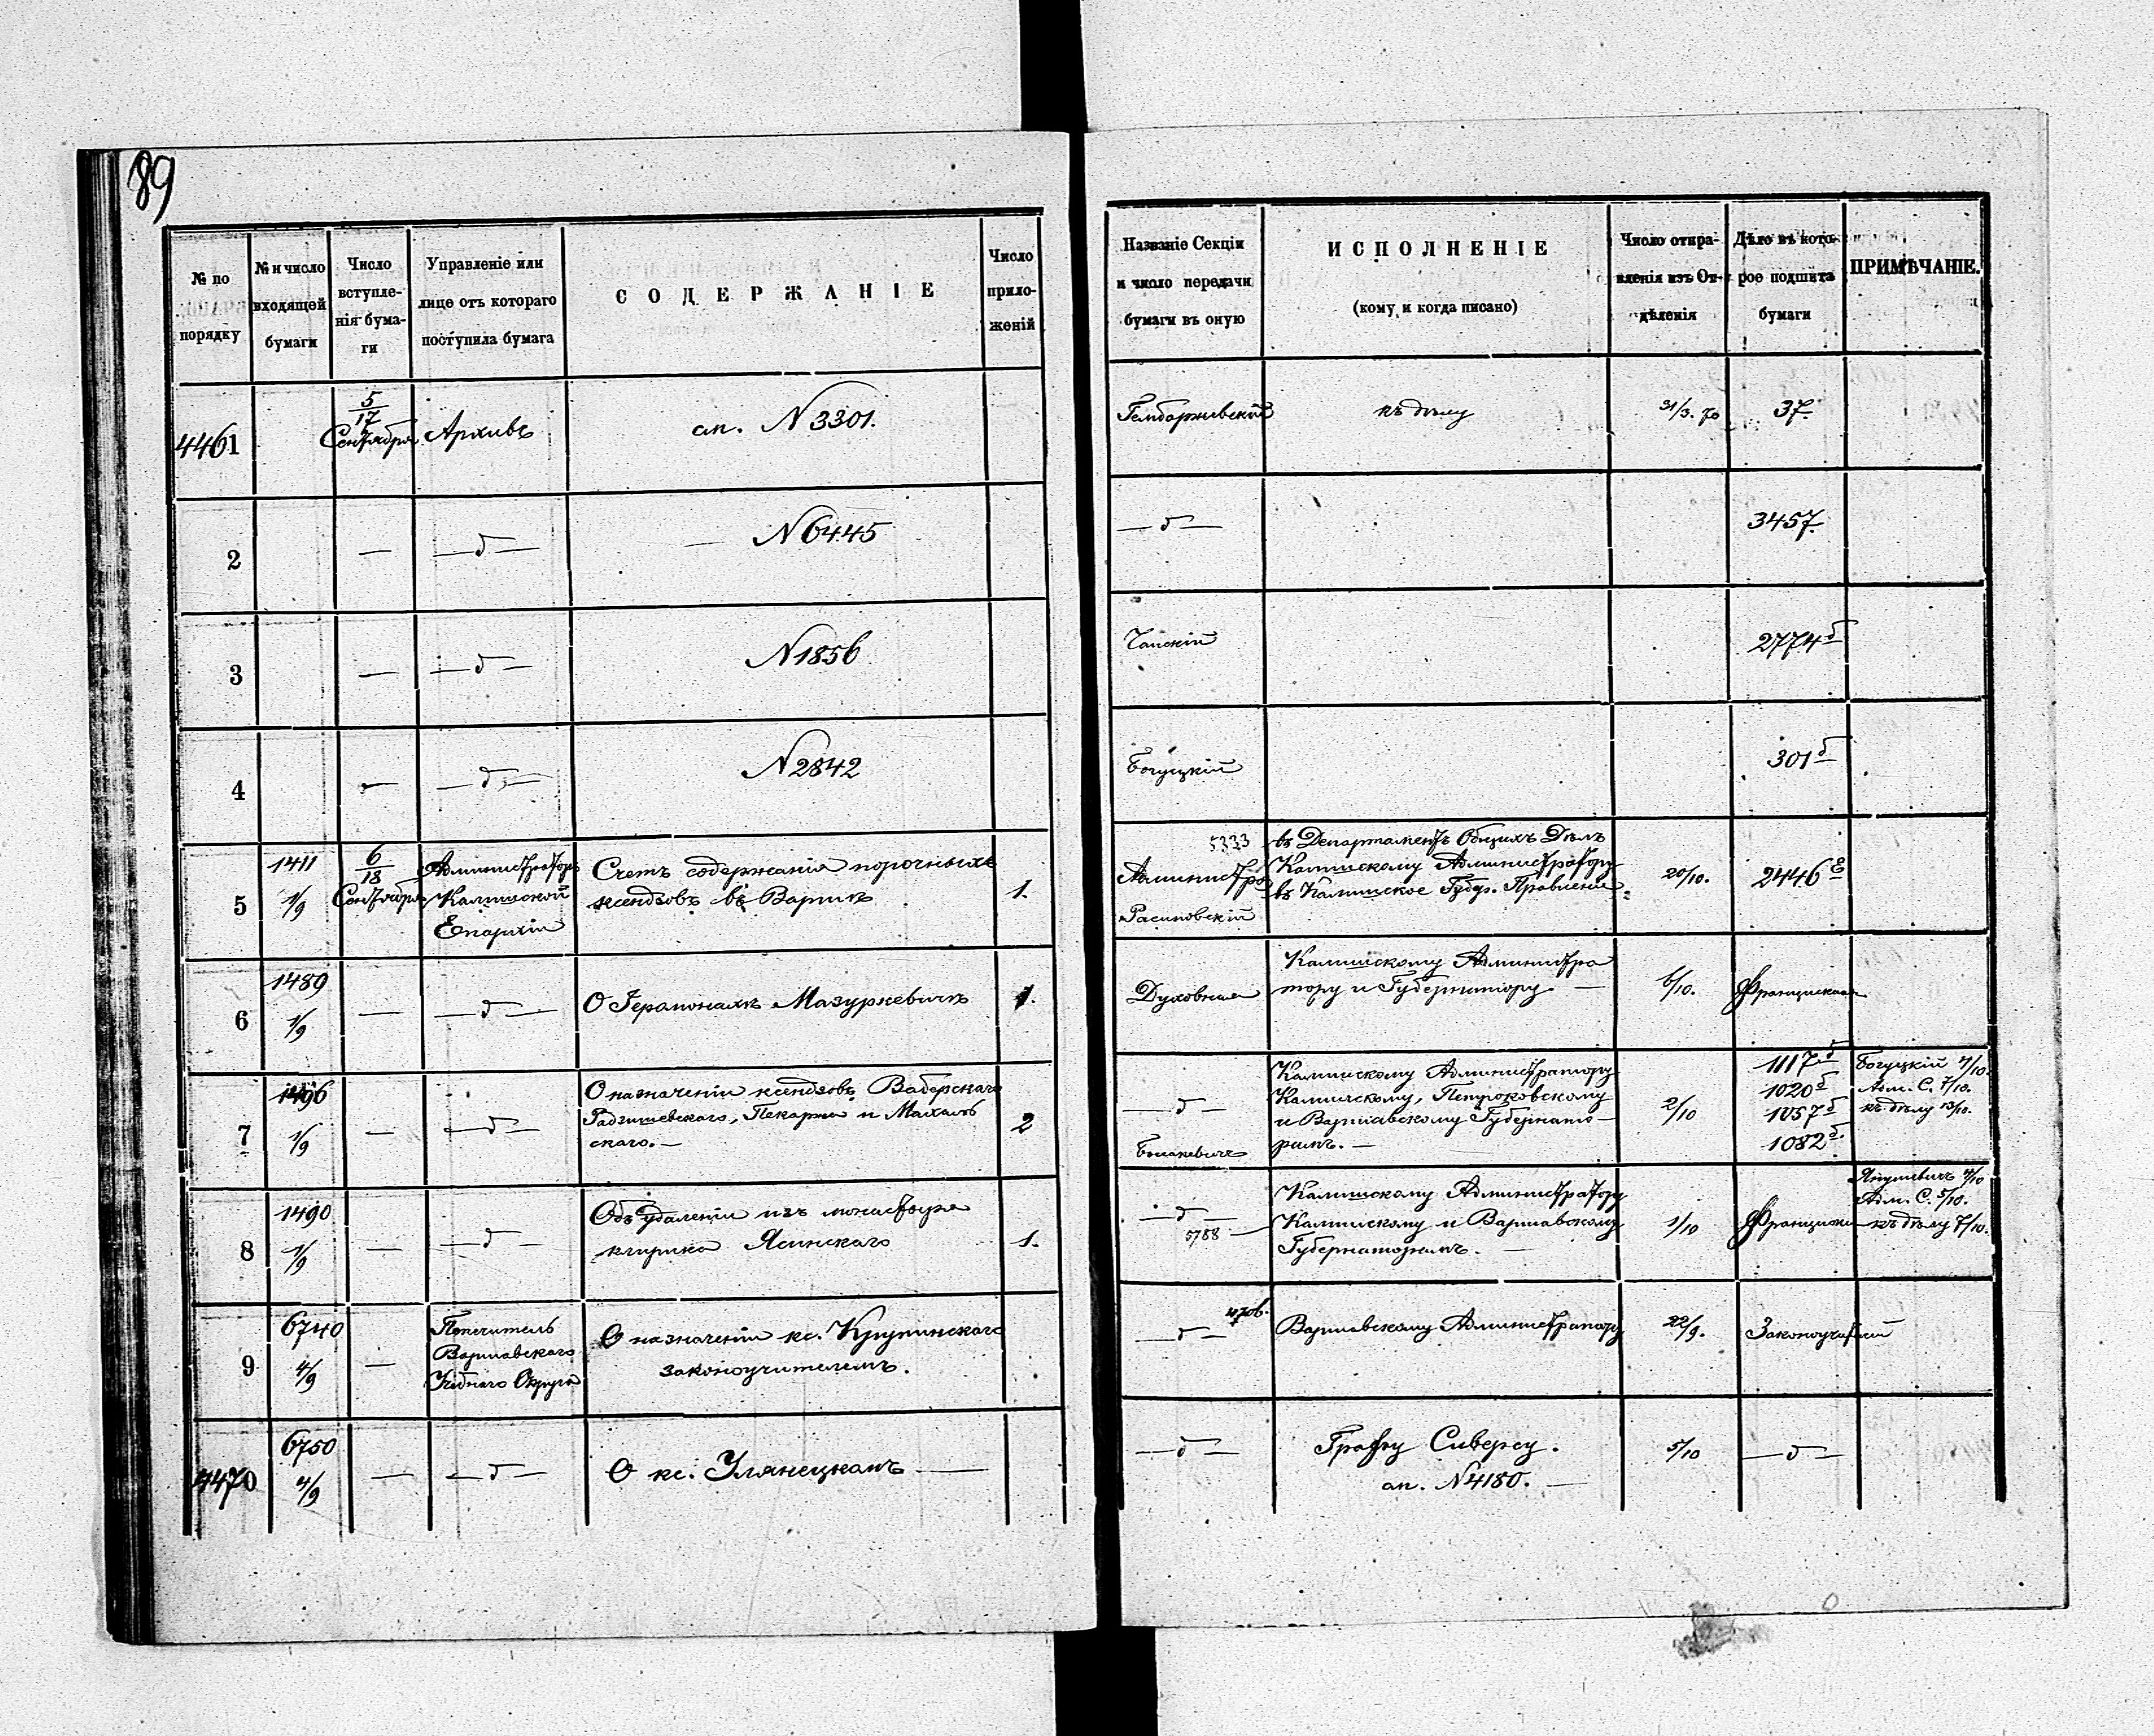 89
№ по порядку
№ и число входящей бумаги
Число вступле-
нія бума-
ги
Управленіе или
лице отъ котораго
поступила бумага
СОДЕРЖАНІЕ
Число
прило-
женій
Названіе Секціи
и число передачи
бумаги въ оную
ИСПОЛНЕНІЕ
(кому и когда писано)
Число отпра-
вленія изъ От-
дѣленія
Дѣло въ кото-
рое подшита
бумаги
ПРИМѢЧАНІЕ.
4461
5/17
Сентября
Архивъ
ап. N 3301.
къ дѣлу
31/3. 70
37
2
—
—δ—
— N 6445
—δ—
3457
3
—
—δ—
N 1856
Чапскій
2774 б
4
—
—δ—
N 2842
Богуцкій
301 б
5
1411
1/9
6/18
Сентября
Администраторъ
Калишской
Епархіи
Счетъ содержанія порочныхъ
ксендзовъ въ
1.
5333
Админист
въ Департаментъ Общихъ Дѣлъ
Калишскому Администратору
въ Калишское Губ. Правленіе
20/10.
2446
6
1489
1/9
—
—δ—
О Іеромонахѣ Мазуркевичѣ
1.
Духовная
Калишскому Администра
тору и Губернатору —
6/10.
7
1496
1/9
—
—δ—
О назначеніи ксендзовъ
Пекарна и
скаго. —
2
—δ—
Калишскому Администратору
Калишскому, Петроковскому
и Варшавскому Губернато—
рамъ. —
2/10
1117 б
1020 б
1057 б
1082 б
Богуцкій 4/10.
Адм. С. 7/10.
къ дѣлу 13/10.
8
1490
1/9
—
—δ—
Объ удаленіи изъ монастыря
клирика Ясинскаго
1.
—δ—
5788
Калишскому Администратору
Калишскому и Варшавскому
Губернаторамъ. —
1/10
Янушевичъ 4/10
Адм. С. 5/10.
къ дѣлу 7/10.
9
6740
4/9
—
Попечитель
Варшавскаго
Учебнаго Округа
О назначеніи кс. Крупинскаго
законоучителемъ.
—δ—
Варшавскому Администратору
22/9.
4470
6750
4/9
—
—δ—
О кс. Улянецкомъ —
—δ—
Графу Сиверсу.
ап. N 4180. —
5/10
—δ—